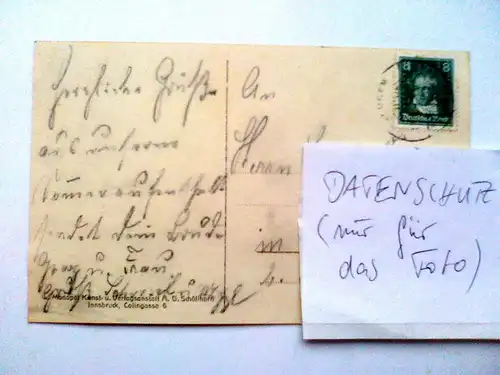 Herzliche Grüße
aus unserem
Sommeraufenthalt
sendet dein Bruder
Georg u. Frau
An
Herrn
in
8 8
Deutsches Reich
DATENSCHUTZ
(nur für
das Foto)
Monopol Kunst- u. Verlagsanstalt A. G. Schöllhorn
Innsbruck, Colingasse 6